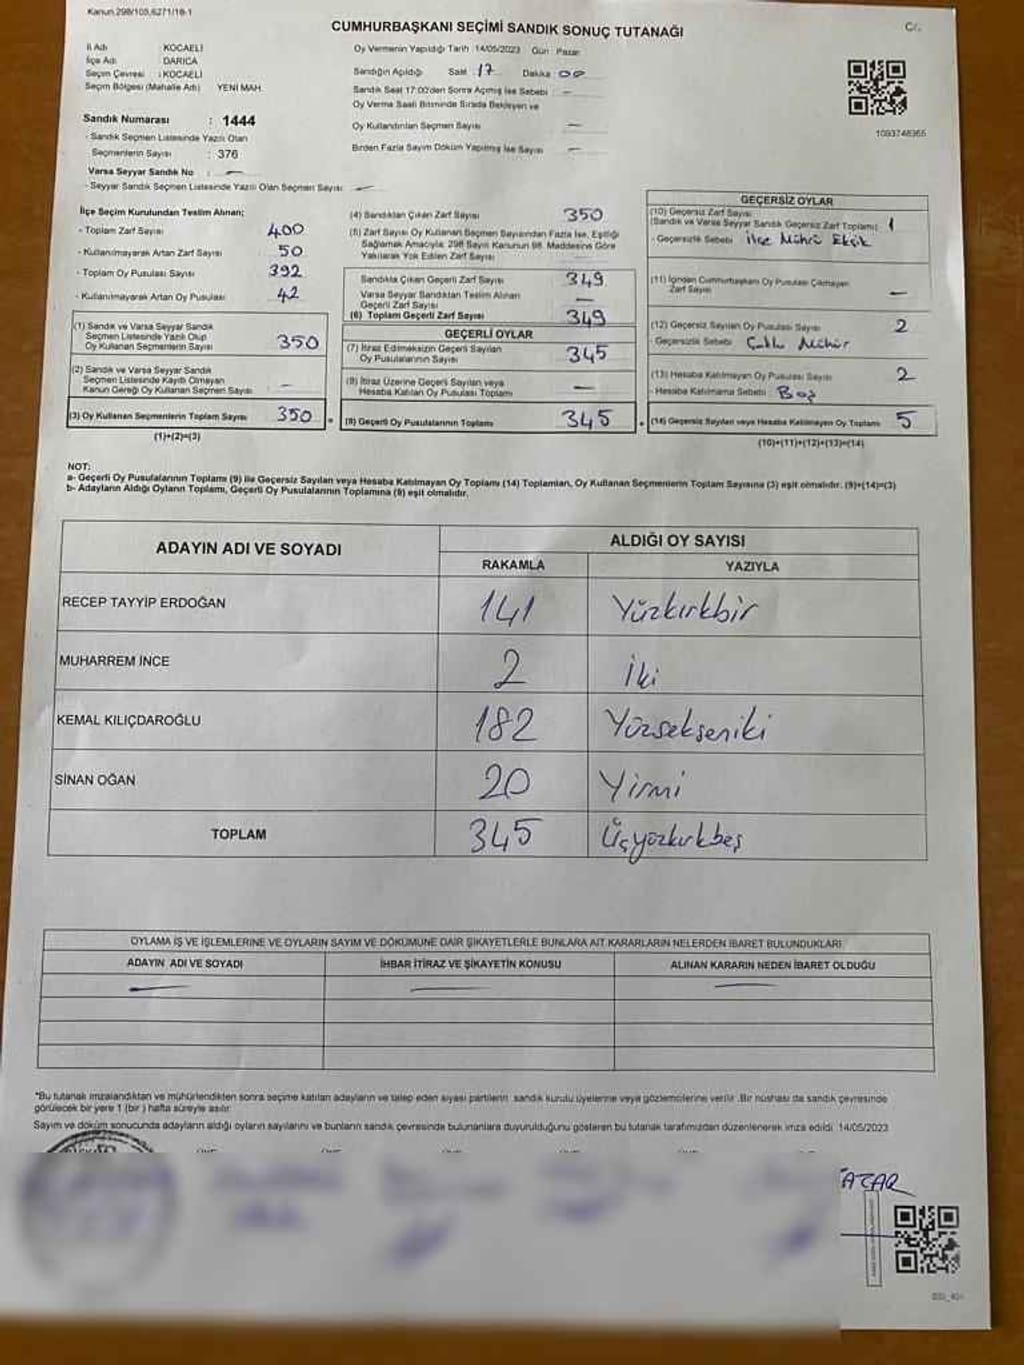 Kanun 298/105,6271/18-1
CUMHURBAŞKANI SEÇİMİ SANDIK SONUÇ TUTANAĞI
C/-
İl Adı KOCAELİ
İlçe Adı DARICA
Seçim Çevresi : KOCAELİ
Seçim Bölgesi (Mahalle Adı) YENİ MAH.
Sandık Numarası : 1444
- Sandık Seçmen Listesinde Yazılı Olan
Seçmenlerin Sayısı : 376
Varsa Seyyar Sandık No : —
- Seyyar Sandık Seçmen Listesinde Yazılı Olan Seçmen Sayısı : —
Oy Vermenin Yapıldığı Tarih : 14/05/2023 Gün : Pazar
Sandığın Açıldığı Saat : 17 Dakika : 00
Sandık Saat 17:00'den Sonra Açılmış İse Sebebi : —
Oy Verme Saati Bitiminde Sırada Bekleyen ve
Oy Kullandırılan Seçmen Sayısı —
Birden Fazla Sayım Döküm Yapılmış İse Sayısı —
1093748365
İlçe Seçim Kurulundan Teslim Alınan;
- Toplam Zarf Sayısı 400
- Kullanılmayarak Artan Zarf Sayısı 50
- Toplam Oy Pusulası Sayısı 392
- Kullanılmayarak Artan Oy Pusulası 42
(1) Sandık ve Varsa Seyyar Sandık
Seçmen Listesinde Yazılı Olup
Oy Kullanan Seçmenlerin Sayısı 350
(2) Sandık ve Varsa Seyyar Sandık
Seçmen Listesinde Kayıtlı Olmayan
Kanun Gereği Oy Kullanan Seçmen Sayısı —
(3) Oy Kullanan Seçmenlerin Toplam Sayısı 350
(1)+(2)=(3)
(4) Sandıktan Çıkan Zarf Sayısı 350
(5) Zarf Sayısı Oy Kullanan Seçmen Sayısından Fazla İse, Eşitliği
Sağlamak Amacıyla 298 Sayılı Kanunun 98. Maddesine Göre
Yakılarak Yok Edilen Zarf Sayısı
Sandıkta Çıkan Geçerli Zarf Sayısı 349
Varsa Seyyar Sandıktan Teslim Alınan
Geçerli Zarf Sayısı —
(6) Toplam Geçerli Zarf Sayısı 349
GEÇERLİ OYLAR
(7) İtiraz Edilmeksizin Geçerli Sayılan
Oy Pusulalarının Sayısı 345
(8) İtiraz Üzerine Geçerli Sayılan veya
Hesaba Katılan Oy Pusulası Toplamı —
(9) Geçerli Oy Pusulalarının Toplamı 345
GEÇERSİZ OYLAR
(10) Geçersiz Zarf Sayısı
(Sandık ve Varsa Seyyar Sandık Geçersiz Zarf Toplamı) 1
- Geçersizlik Sebebi İlçe Mührü Eksik
(11) İçinden Cumhurbaşkanı Oy Pusulası Çıkmayan
Zarf Sayısı —
(12) Geçersiz Sayılan Oy Pusulası Sayısı 2
- Geçersizlik Sebebi Çoklu Mühür
(13) Hesaba Katılmayan Oy Pusulası Sayısı 2
- Hesaba Katılmama Sebebi Boş
(14) Geçersiz Sayılan veya Hesaba Katılmayan Oy Toplamı 5
(10)+(11)+(12)+(13)=(14)
NOT:
a- Geçerli Oy Pusulalarının Toplamı (9) ile Geçersiz Sayılan veya Hesaba Katılmayan Oy Toplamı (14) Toplamları, Oy Kullanan Seçmenlerin Toplam Sayısına (3) eşit olmalıdır. (9)+(14)=(3)
b- Adayların Aldığı Oyların Toplamı, Geçerli Oy Pusulalarının Toplamına (9) eşit olmalıdır.
ADAYIN ADI VE SOYADI
ALDIĞI OY SAYISI
RAKAMLA YAZIYLA
RECEP TAYYİP ERDOĞAN 141 Yüzkırkbir
MUHARREM İNCE 2 İki
KEMAL KILIÇDAROĞLU 182 Yüzsekseniki
SİNAN OĞAN 20 Yirmi
TOPLAM 345 Üçyüzkırkbeş
OYLAMA İŞ VE İŞLEMLERİNE VE OYLARIN SAYIM VE DÖKÜMÜNE DAİR ŞİKAYETLERLE BUNLARA AİT KARARLARIN NELERDEN İBARET BULUNDUKLARI
ADAYIN ADI VE SOYADI İHBAR İTİRAZ VE ŞİKAYETİN KONUSU ALINAN KARARIN NEDEN İBARET OLDUĞU
— — —
*Bu tutanak imzalandıktan ve mühürlendikten sonra seçime katılan adayların ve talep eden siyasi partilerin sandık kurulu üyelerine veya gözlemcilerine verilir. Bir nüshası da sandık çevresinde
görülecek bir yere 1 (bir) hafta süreyle asılır.
Sayım ve döküm sonucunda adayların aldığı oyların sayılarını ve bunların sandık çevresinde bulunanlara duyurulduğunu gösteren bu tutanak tarafımızdan düzenlenerek imza edildi. 14/05/2023